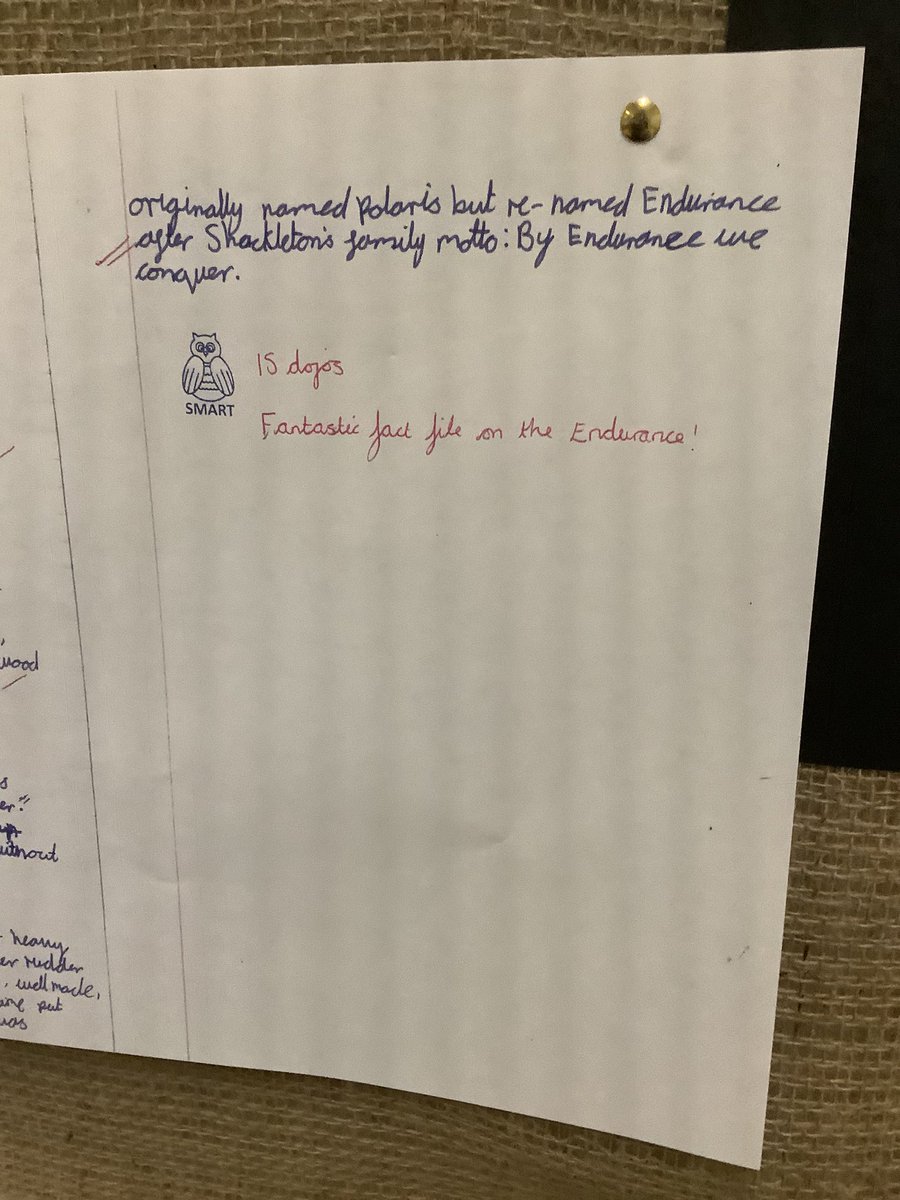 wood
s
er."
without
heavy
er rudder
, well made,
ame put
was
originally named polaris but re-named Endurance
after Shackleton's family motto: By Endurance we
conquer.
SMART
15 dojos
Fantastic fact file on the Endurance!